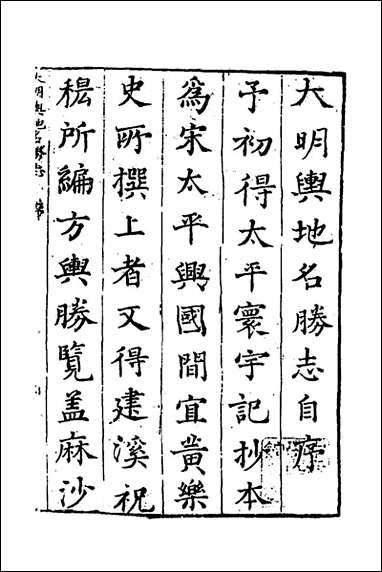 大明輿地名勝志自序
予初得太平寰宇記抄本
爲宋太平興國間宜黄樂
史所撰上者又得建溪祝
穆所編方輿勝覽盖麻沙
大明輿地名勝志 序